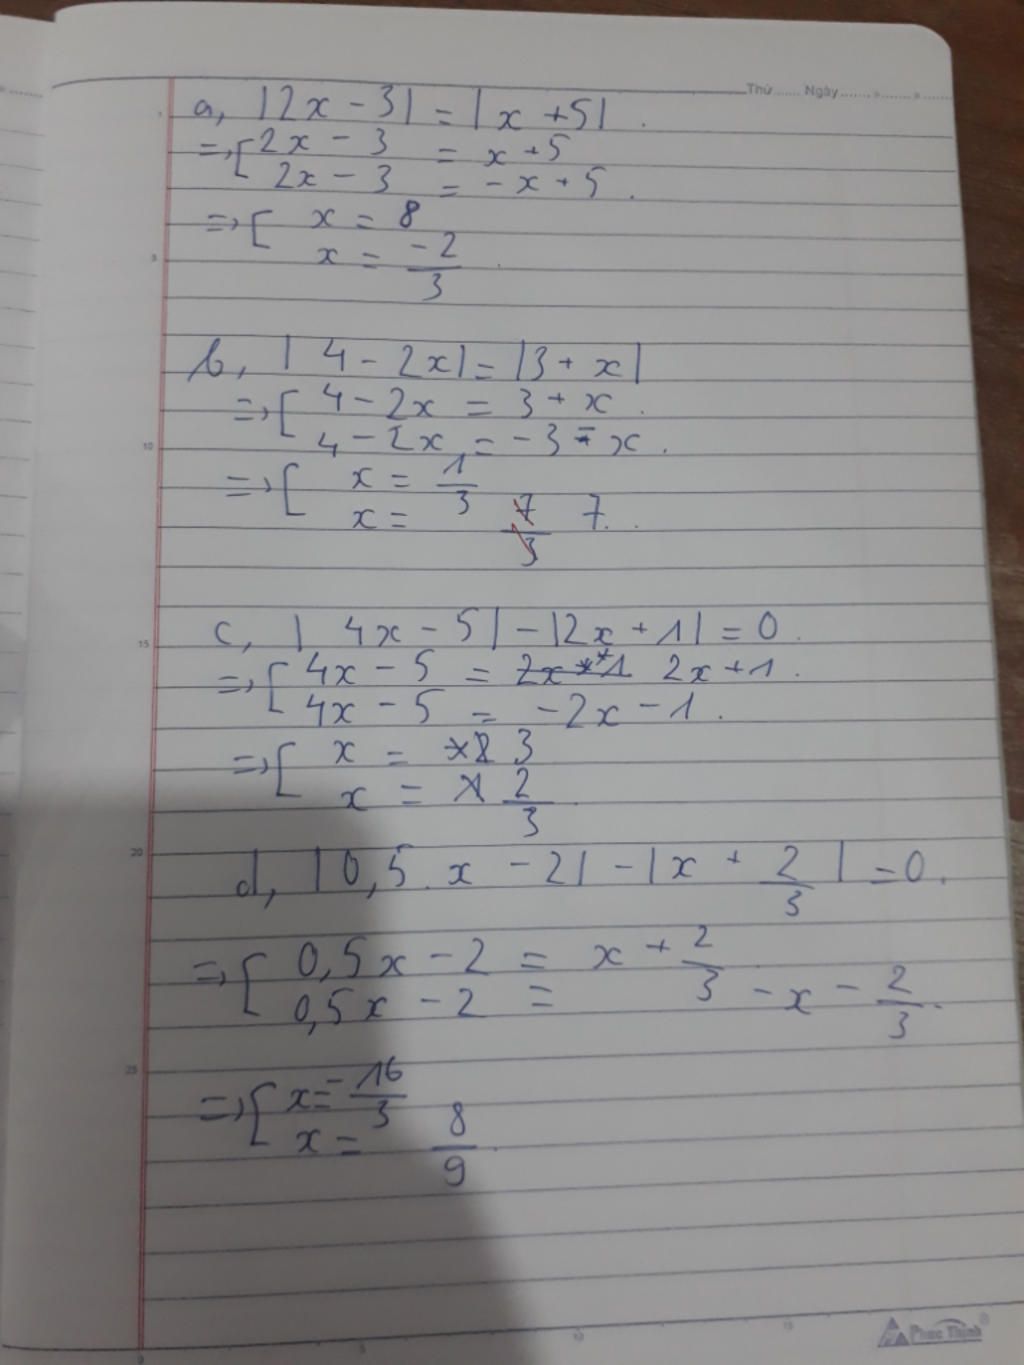 Thứ ...... Ngày ....... » ....... » .......
a, |2x - 3| = |x + 5| .
=> [ 2x - 3 = x + 5
2x - 3 = - x + 5 .
=> [ x = 8
x = -2/3 .
b, | 4 - 2x| = |3 + x|
=> [ 4 - 2x = 3 + x .
4 - 2x = - 3 - x .
=> [ x = 1/3
x = 7/3 7 .
c, | 4x - 5| - |2x + 1| = 0 .
=> [ 4x - 5 = 2x + 1 .
4x - 5 = - 2x - 1 .
=> [ x = 3
x = 2/3 .
d, |0,5.x - 2| - |x + 2/3| = 0 .
=> [ 0,5x - 2 = x + 2/3
0,5x - 2 = - x - 2/3 .
=> [ x = -16/3
x = 8/9 .
Phúc Thịnh